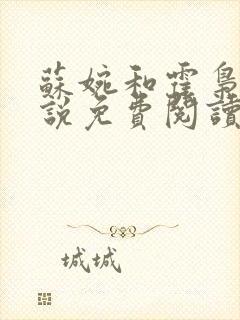 蘇婉和霆梟
說免費閱讀
城城